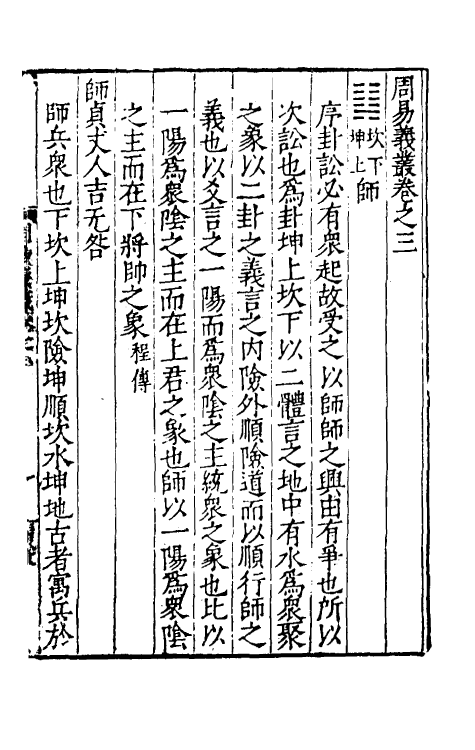 周易義叢卷之三
䷆坎下坤上師
序卦訟必有衆起故受之以師師之興由有爭也所以
次訟也爲卦坤上坎下以二體言之地中有水爲衆聚
之象以二卦之義言之内險外順險道而以順行師之
義也以爻言之一陽而爲衆陰之主統衆之象也比以
一陽爲衆陰之主而在上君之象也師以一陽爲衆陰
之主而在下將帥之象程傳
師貞丈人吉无咎
師兵衆也下坎上坤坎險坤順坎水坤地古者寓兵於